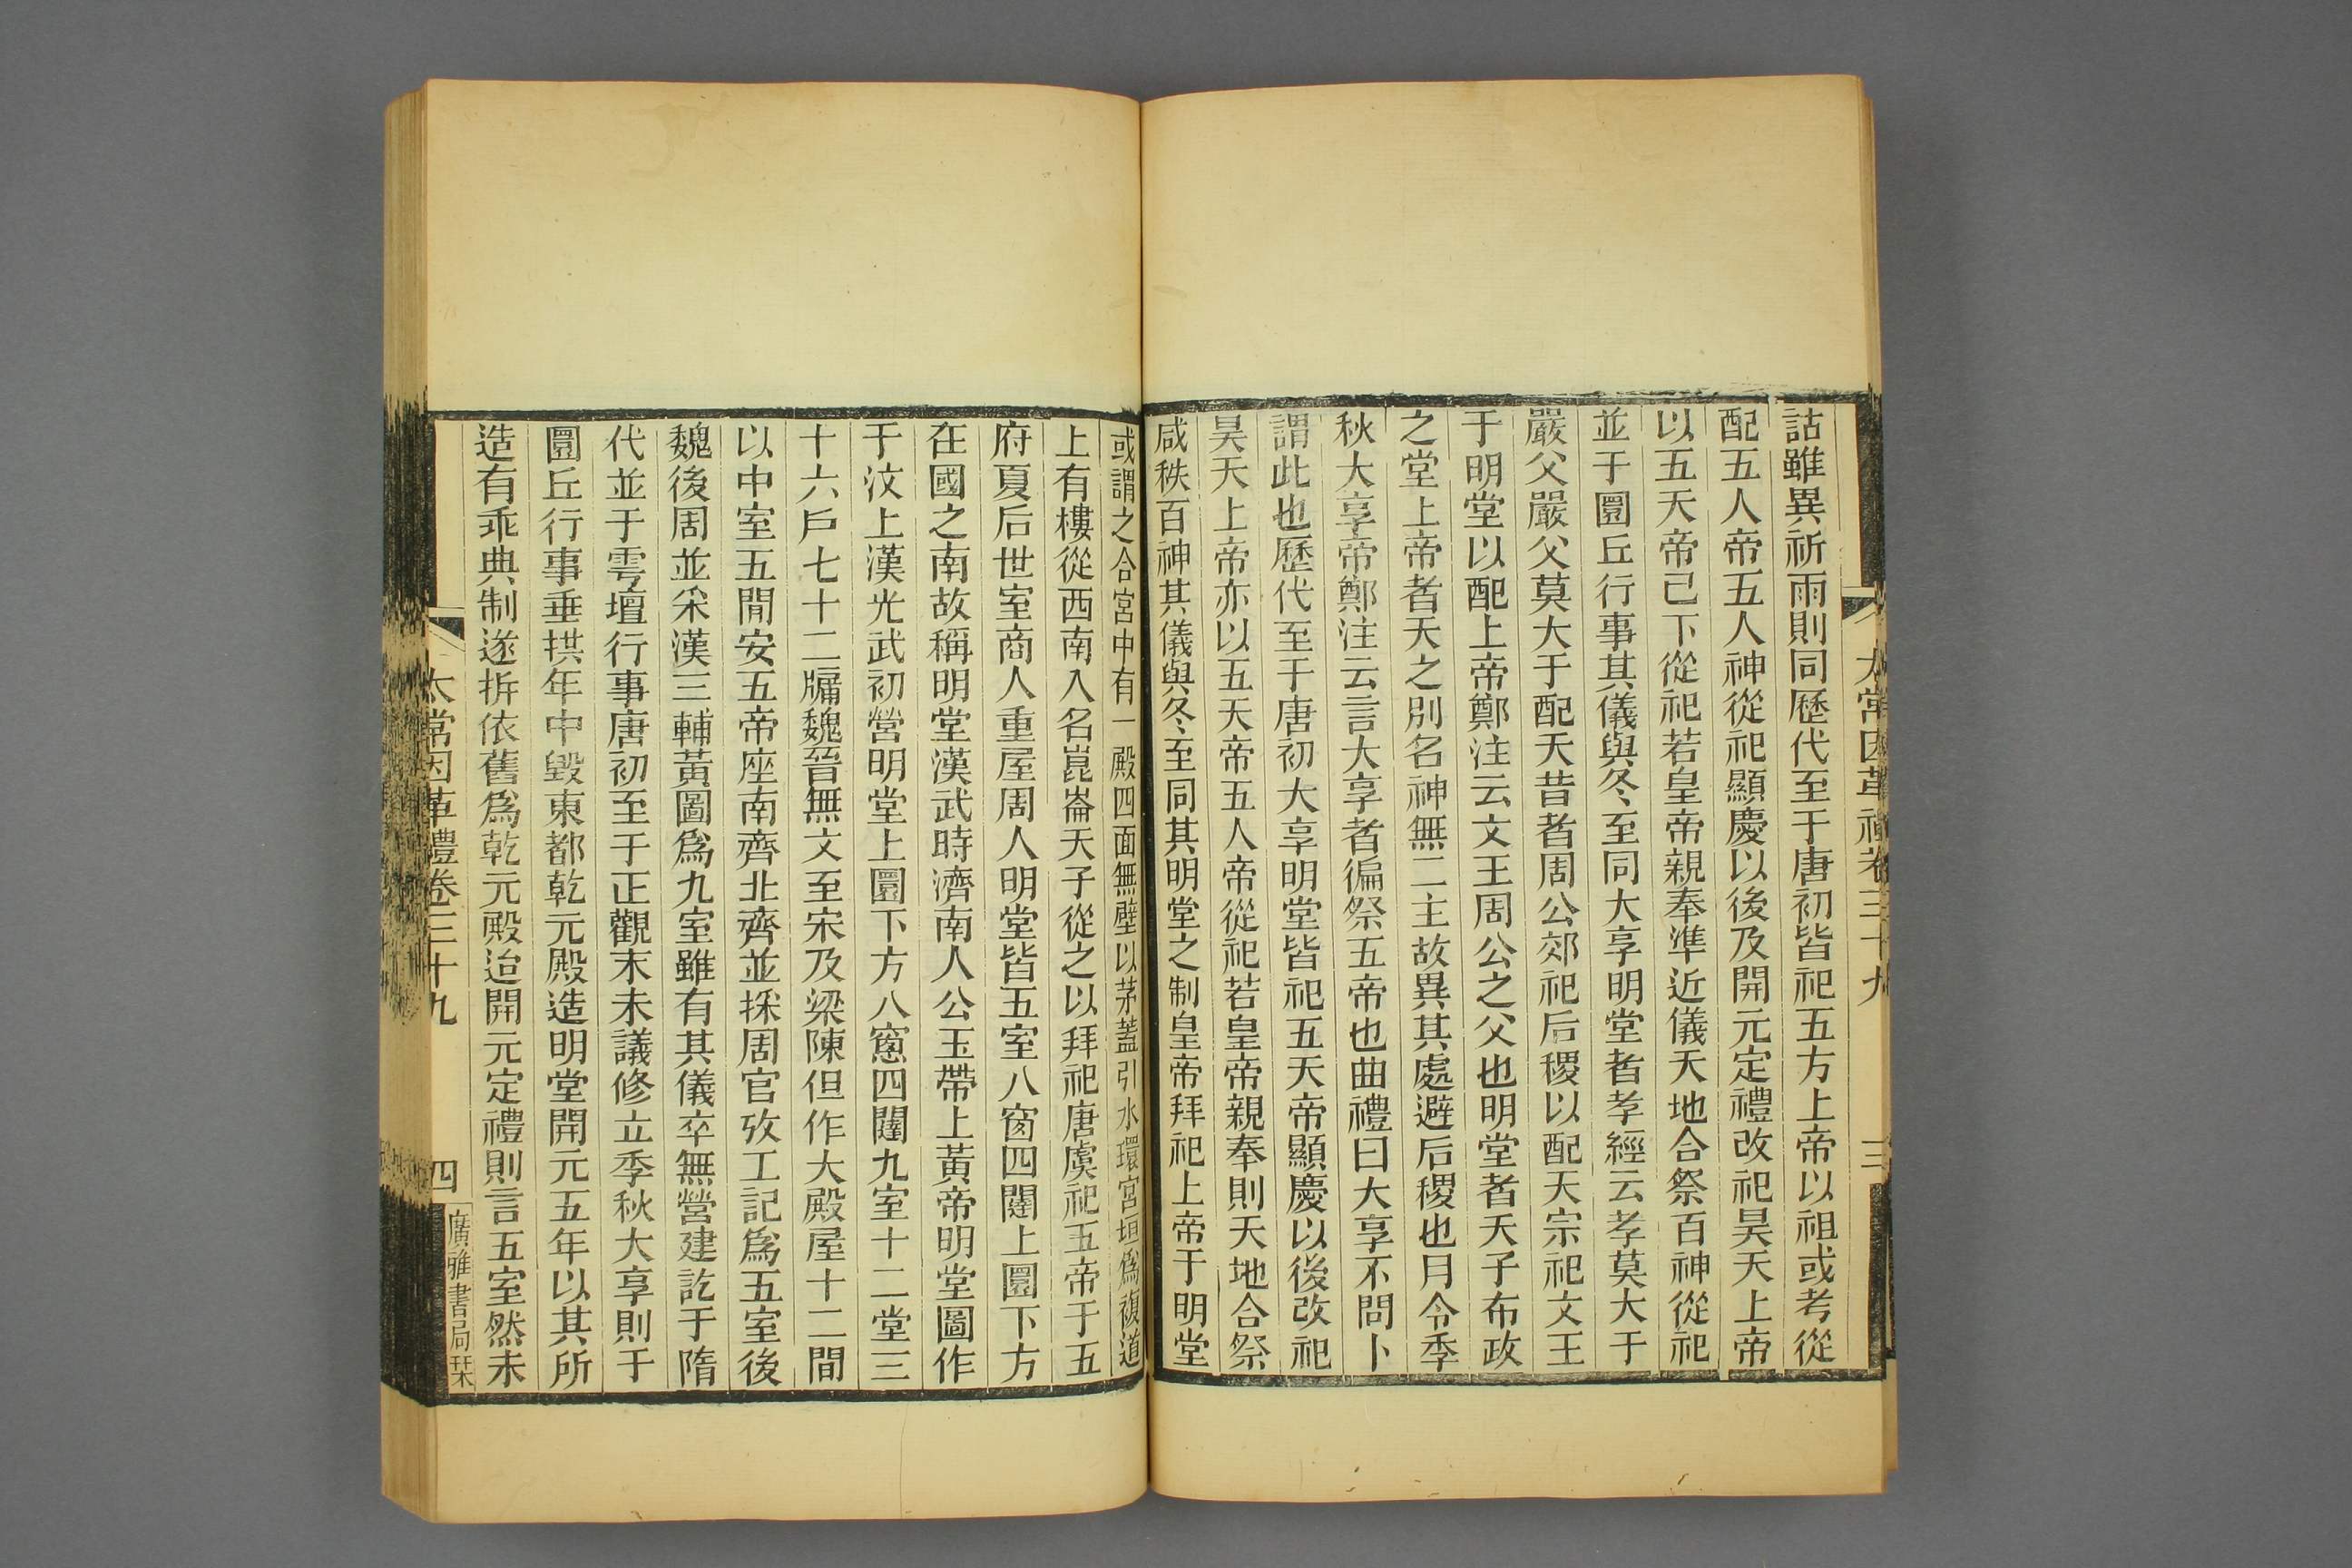 太常因革禮卷三十九
三
詁雖異祈雨則同歷代至于唐初皆祀五方上帝以祖或考從
配五人帝五人神從祀顯慶以後及開元定禮改祀昊天上帝
以五天帝已下從祀若皇帝親奉準近儀天地合祭百神從祀
並于圜丘行事其儀與冬至同大享明堂者孝經云孝莫大于
嚴父嚴父莫大于配天昔者周公郊祀后稷以配天宗祀文王
于明堂以配上帝鄭注云文王周公之父也明堂者天子布政
之堂上帝者天之別名神無二主故異其處避后稷也月令季
秋大享帝鄭注云言大享者徧祭五帝也曲禮曰大享不問卜
謂此也歷代至于唐初大享明堂皆祀五天帝顯慶以後改祀
昊天上帝亦以五天帝五人帝從祀若皇帝親奉則天地合祭
咸秩百神其儀與冬至同其明堂之制皇帝拜祀上帝于明堂
或謂之合宮中有一殿四面無壁以茅蓋引水環宮垣為複道
上有樓從西南入名崑崙天子從之以拜祀唐虞祀五帝于五
府夏后世室商人重屋周人明堂皆五室八窗四闥上圜下方
在國之南故稱明堂漢武時濟南人公玉帶上黃帝明堂圖作
于汶上漢光武初營明堂上圜下方八窻四闥九室十二堂三
十六戶七十二牖魏晉無文至宋及梁陳但作大殿屋十二間
以中室五間安五帝座南齊北齊並採周官攷工記為五室後
魏後周並采漢三輔黃圖為九室雖有其儀卒無營建訖于隋
代並于雩壇行事唐初至于正觀末未議修立季秋大享則于
圜丘行事垂拱年中毀東都乾元殿造明堂開元五年以其所
造有乖典制遂拆依舊為乾元殿迨開元定禮則言五室然未
太常因革禮卷三十九
四
廣雅書局栞